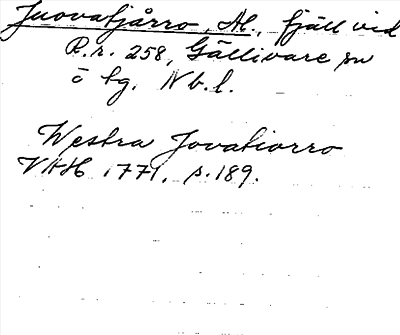 Juovatjårro, St., fjäll vid
R.r. 258, Gällivare sn
o tg, Nb.l.
Westra Jovatiorro
VHH 1771. s. 189.